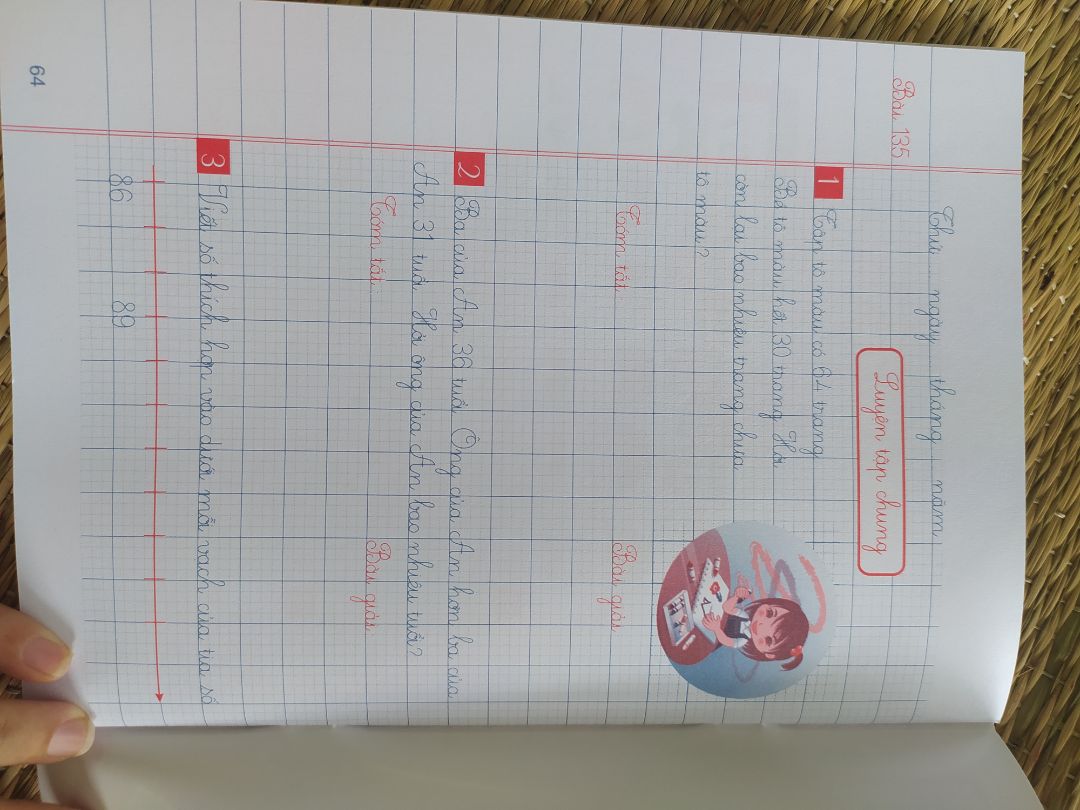 Thứ ngày tháng năm
Bài 135
Luyện tập chung
1 Tập tô màu có 64 trang.
Bé tô màu hết 30 trang. Hỏi
còn lại bao nhiêu trang chưa
tô màu?
Tóm tắt: Bài giải
2 Ba của An 36 tuổi. Ông của An hơn ba của
An 31 tuổi. Hỏi ông của An bao nhiêu tuổi?
Tóm tắt: Bài giải
3 Viết số thích hợp vào dưới mỗi vạch của tia số
86 89
64